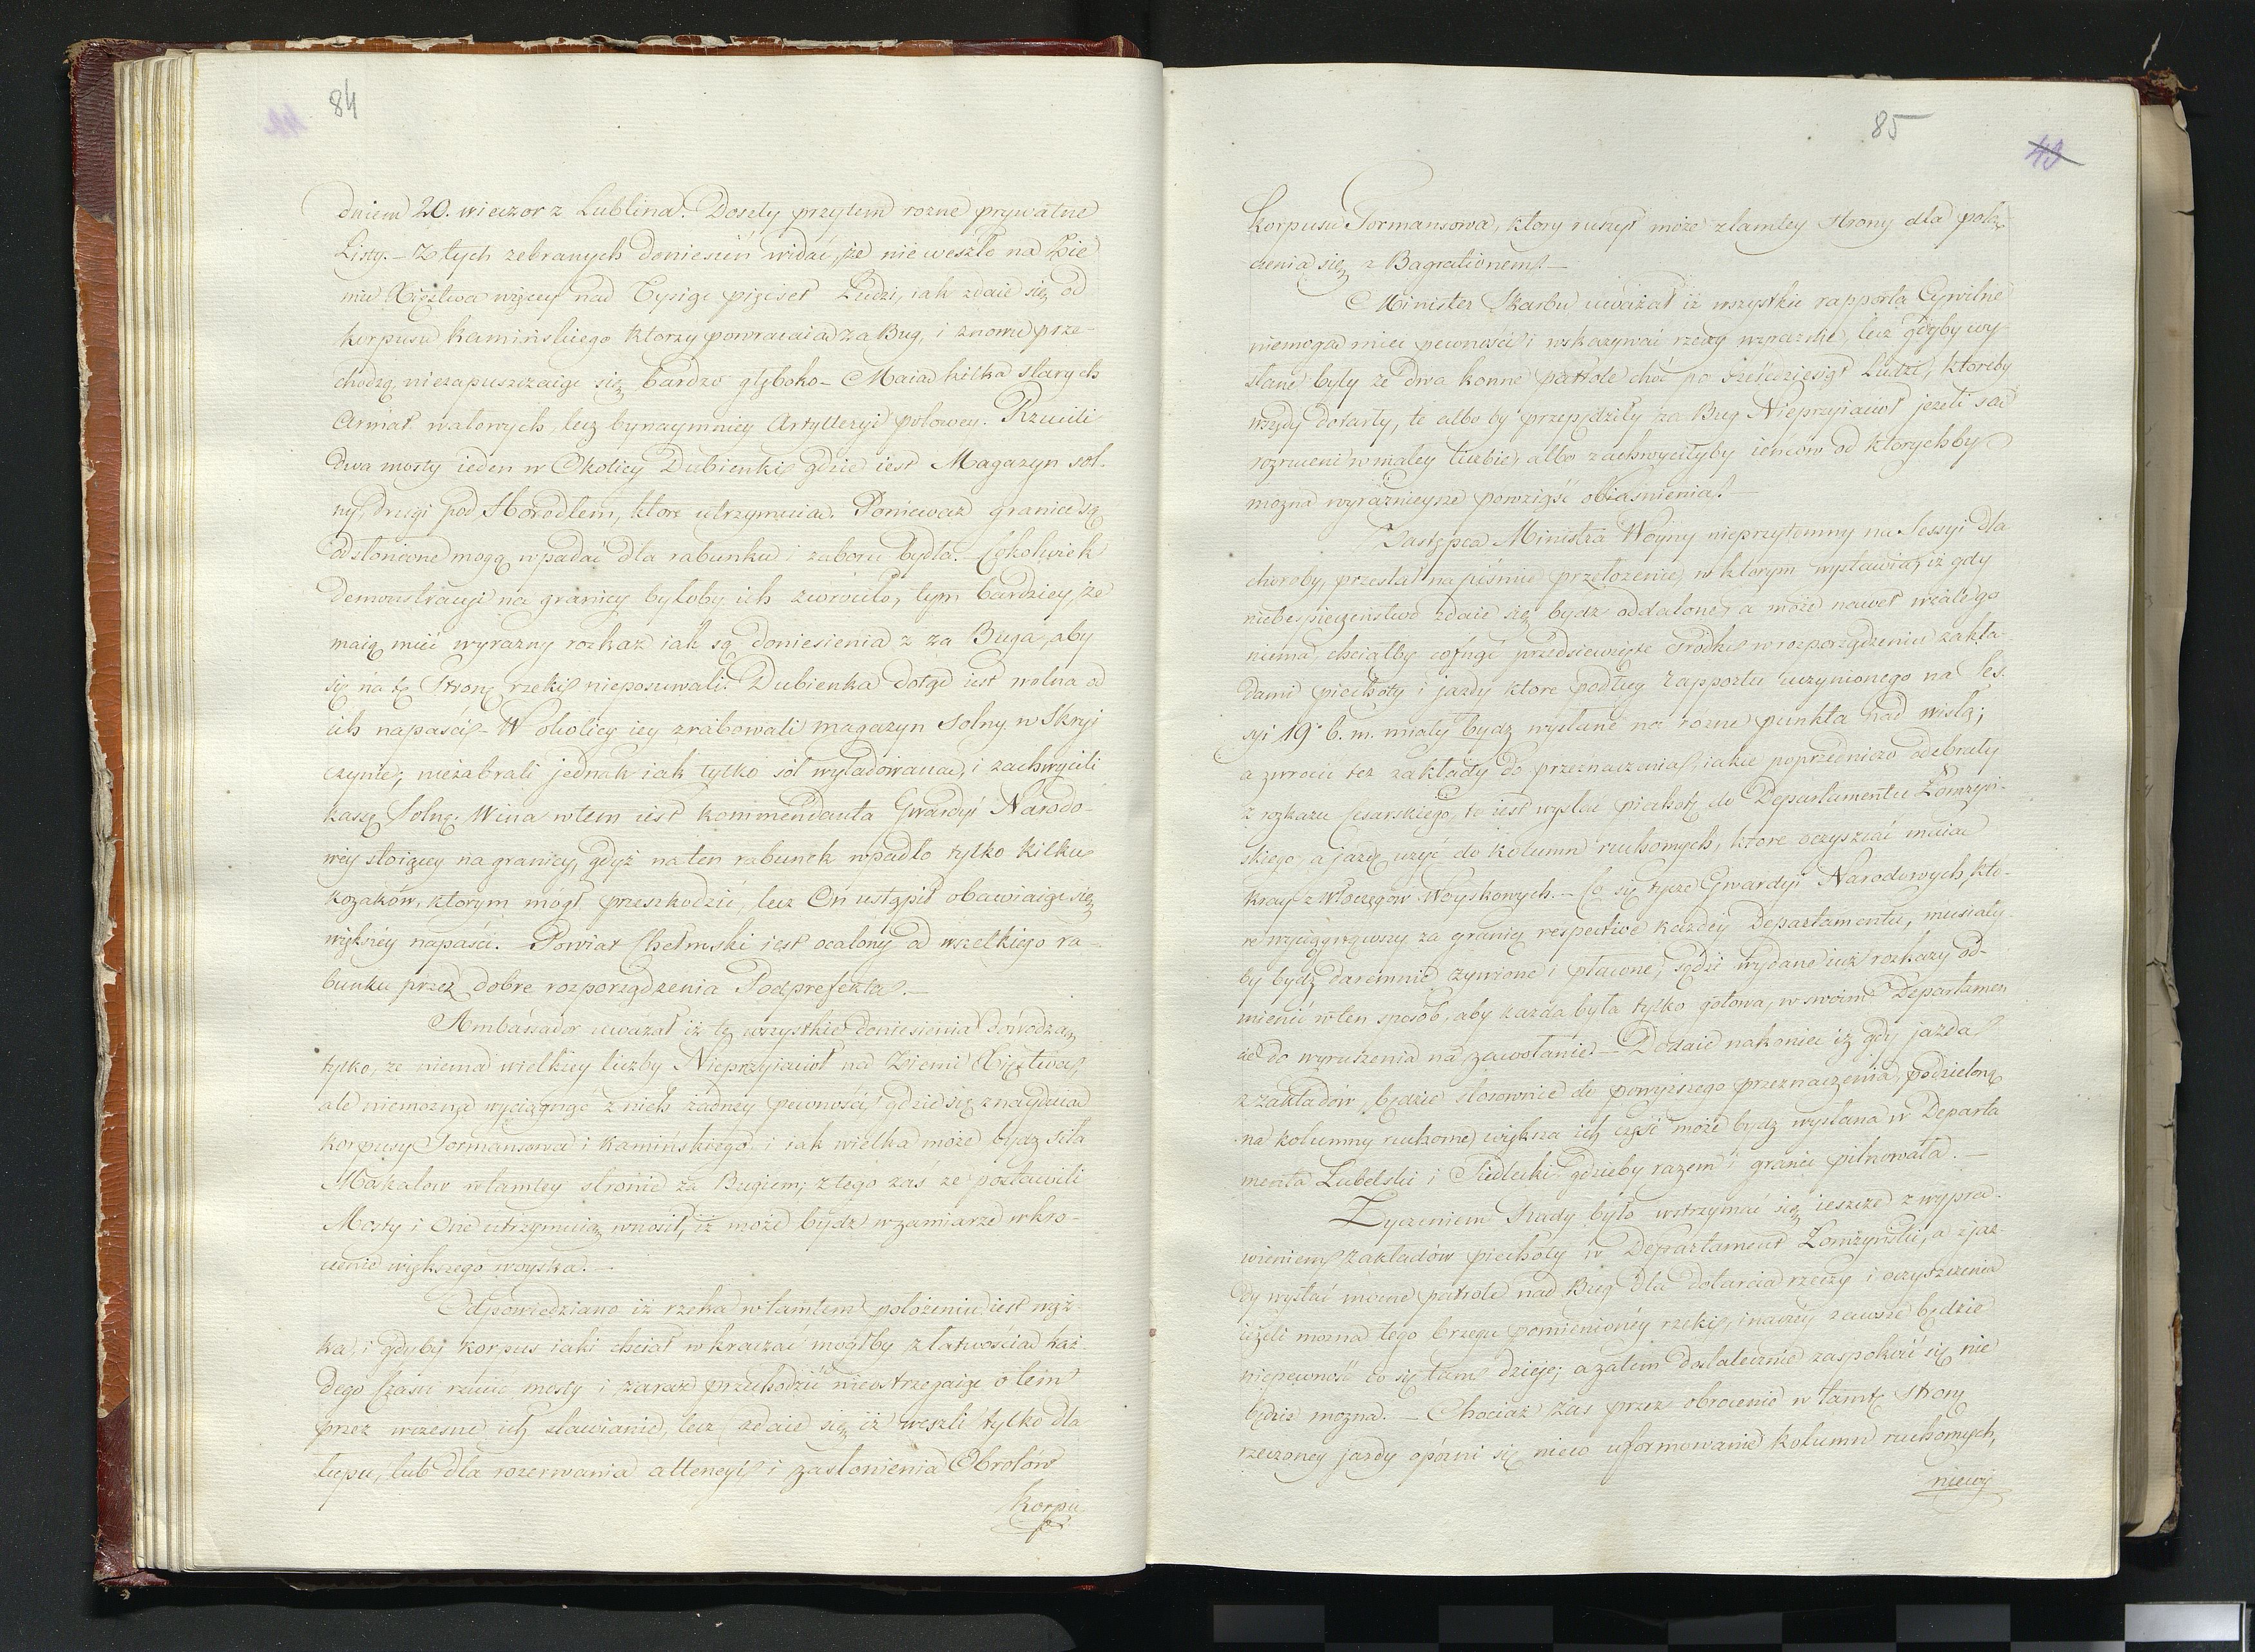 84
dniem 20. wieczor z Lublina. Doszły przytem rozne prywatne
Listy. – Z tych zebranych doniesień widać, że nie weszło na Zie
mie Xięstwa więcey nad Tysiąc pięćset Ludzi, iak zdaie się od
korpusu Kamińskiego ktorzy powracaią za Bug, i znowu prze-
chodzą, niezapuszczaiąc się bardzo głęboko – Maią kilka starych
Armat wałowych, lecz bynaymniey Artylleryi polowey. Rzucili
dwa mosty ieden w Okolicy Dubienki gdzie iest Magazyn sol-
ny, drugi pod Horodłem, ktore utrzymuią. Ponieważ granice są
odsłonione mogą wpadać dla rabunku i zaboru bydła. Cokolwiek
demonstracyi na granicy byłoby ich zwrociło, tym bardziey, że
maią mieć wyrazny rozkaz iak są doniesienia z za Buga, aby
się na tę Stronę rzeki nieposuwali. Dubienka dotąd iest wolna od
ich napaści – W okolicy iey zrabowali magazyn Solny w Skryi
czynie; niezabrali jednak iak tylko sól wyładowaną, i zachwycili
kassę Solną. Wina wtem iest kommendanta Gwardyi Narodo-
wey stoiącey na granicy, gdyż na ten rabunek wpadło tylko kilku
kozaków, ktorym mógł przeszkodzić, lecz On ustąpił obawiaiąc się
większey napaści. – Powiat Chełmski iest ocalony od wszelkiego ra-
bunku przez dobre rozporządzenia Podprefekta. –
Ambassador uważał iż te wszystkie doniesienia dowodzą
tylko, że niema wielkiey liczby Nieprzyiacioł na Ziemi Xięstwa
ale niemożna wyciągnąć z nich żadney pewności, gdzie się znayduią
korpusy Tormansowa i Kamińskiego i iak wielka może bydz siła
Makałow w tamtey stronie za Bugiem; z tego zaś że postawili
Mosty i One utrzymuią wnosił, iż może bydz w zamiarze wkro-
czenie większego woyska. –
Odpowiedziano iż rzeka w tamtem położeniu iest wąz
ka, i gdyby korpus iaki chciał wkraczać mogłby z łatwością każ
dego Czasu rzucić mosty i zaraz przechodzić nieostrzegaiąc o tem
przez wczesne ich stawianie, lecz zdaie się iż weszli tylko dla
łupu, lub dla rozerwania attencyi i zasłonienia Obrotów
Korpu
85
43
Korpusu Tormansowa, ktory ruszył może z tamtey Strony dla połą
czenia się z Bagrationem. –
Minister Skarbu uważał iż wszystkie rapporta Cywilne
niemogą mieć pewności i wskazywać rzeczy wyraznie, lecz gdyby wy-
słane były ze dwa konne patrole choć po sześćdziesiąt Ludzi, ktoreby
wszędy dotarły, te albo by przepędziły za Bug Nieprzyiacioł jeżeli są
rozrzuceni w małey liczbie, albo zachwyciłyby ieńców od ktorychby
można wyraznieysze powziąść obiaśnienia. –
Zastępca Ministra Woyny nieprzytomny na Sessyi dla
choroby, przesłał na piśmie przełożenie w ktorym wystawia, iż gdy
niebespieczeństwo zdaie się bydz oddalone, a może nawet wcale go
niema, chciałby cofnąć przedsięwzięte srodki w rozporządzeniu zakła-
dami piechoty i jazdy ktore podług rapportu uczynionego na Ses-
syi 19o b. m. miały bydz wysłane na rozne punkta nad Wisłą;
a zwrocić tez zakłady do przeznaczenia, iakie poprzedniczo odebrały
z rozkazu Cesarskiego, to iest wysłać piechotę do Departamentu Łomzyń-
skiego, a jazdę użyć do kolumn ruchomych, ktore oczyszczać maią
kray z włoczęgów Woyskowych. – Co się tycze Gwardyi Narodowych, kto-
re wyciągnąwszy za granicę respective każdey Departamentu, musiały
by bydz daremnie żywione i płacone, sądzi wydane iuż rozkazy od-
mienić w ten sposób, aby każda była tylko gotowa, w swoim Departamen
cie do wyruszenia na zawołanie – Dodaie nakoniec iż gdy jazda
z zakładów będzie stosownie do powyższego przeznaczenia, podzieloną
na kolumny ruchome, większa ich część może bydz wysłana w Departa
menta Lubelski i Siedlecki, gdzieby razem i granic pilnowała. –
Zyczeniem Rady było wstrzymać się ieszcze z wypra-
wieniem zakładów piechoty w Departament Łomżyński, a z jaz-
dy wysłać mocne patrole nad Bug dla dotarcia rzeczy i oczyszczenia
ieżeli można tego brzegu pomienioney rzeki, inaczey zawsze będzie
niepewność co się tam dzieje; a zatem dostatecznie zaspokoić się nie
będzie można. – Chociaż zas przez obrocenie w tamtę Stronę
rzeczoney jazdy opoźni się nieco uformowanie kolumn ruchomych,